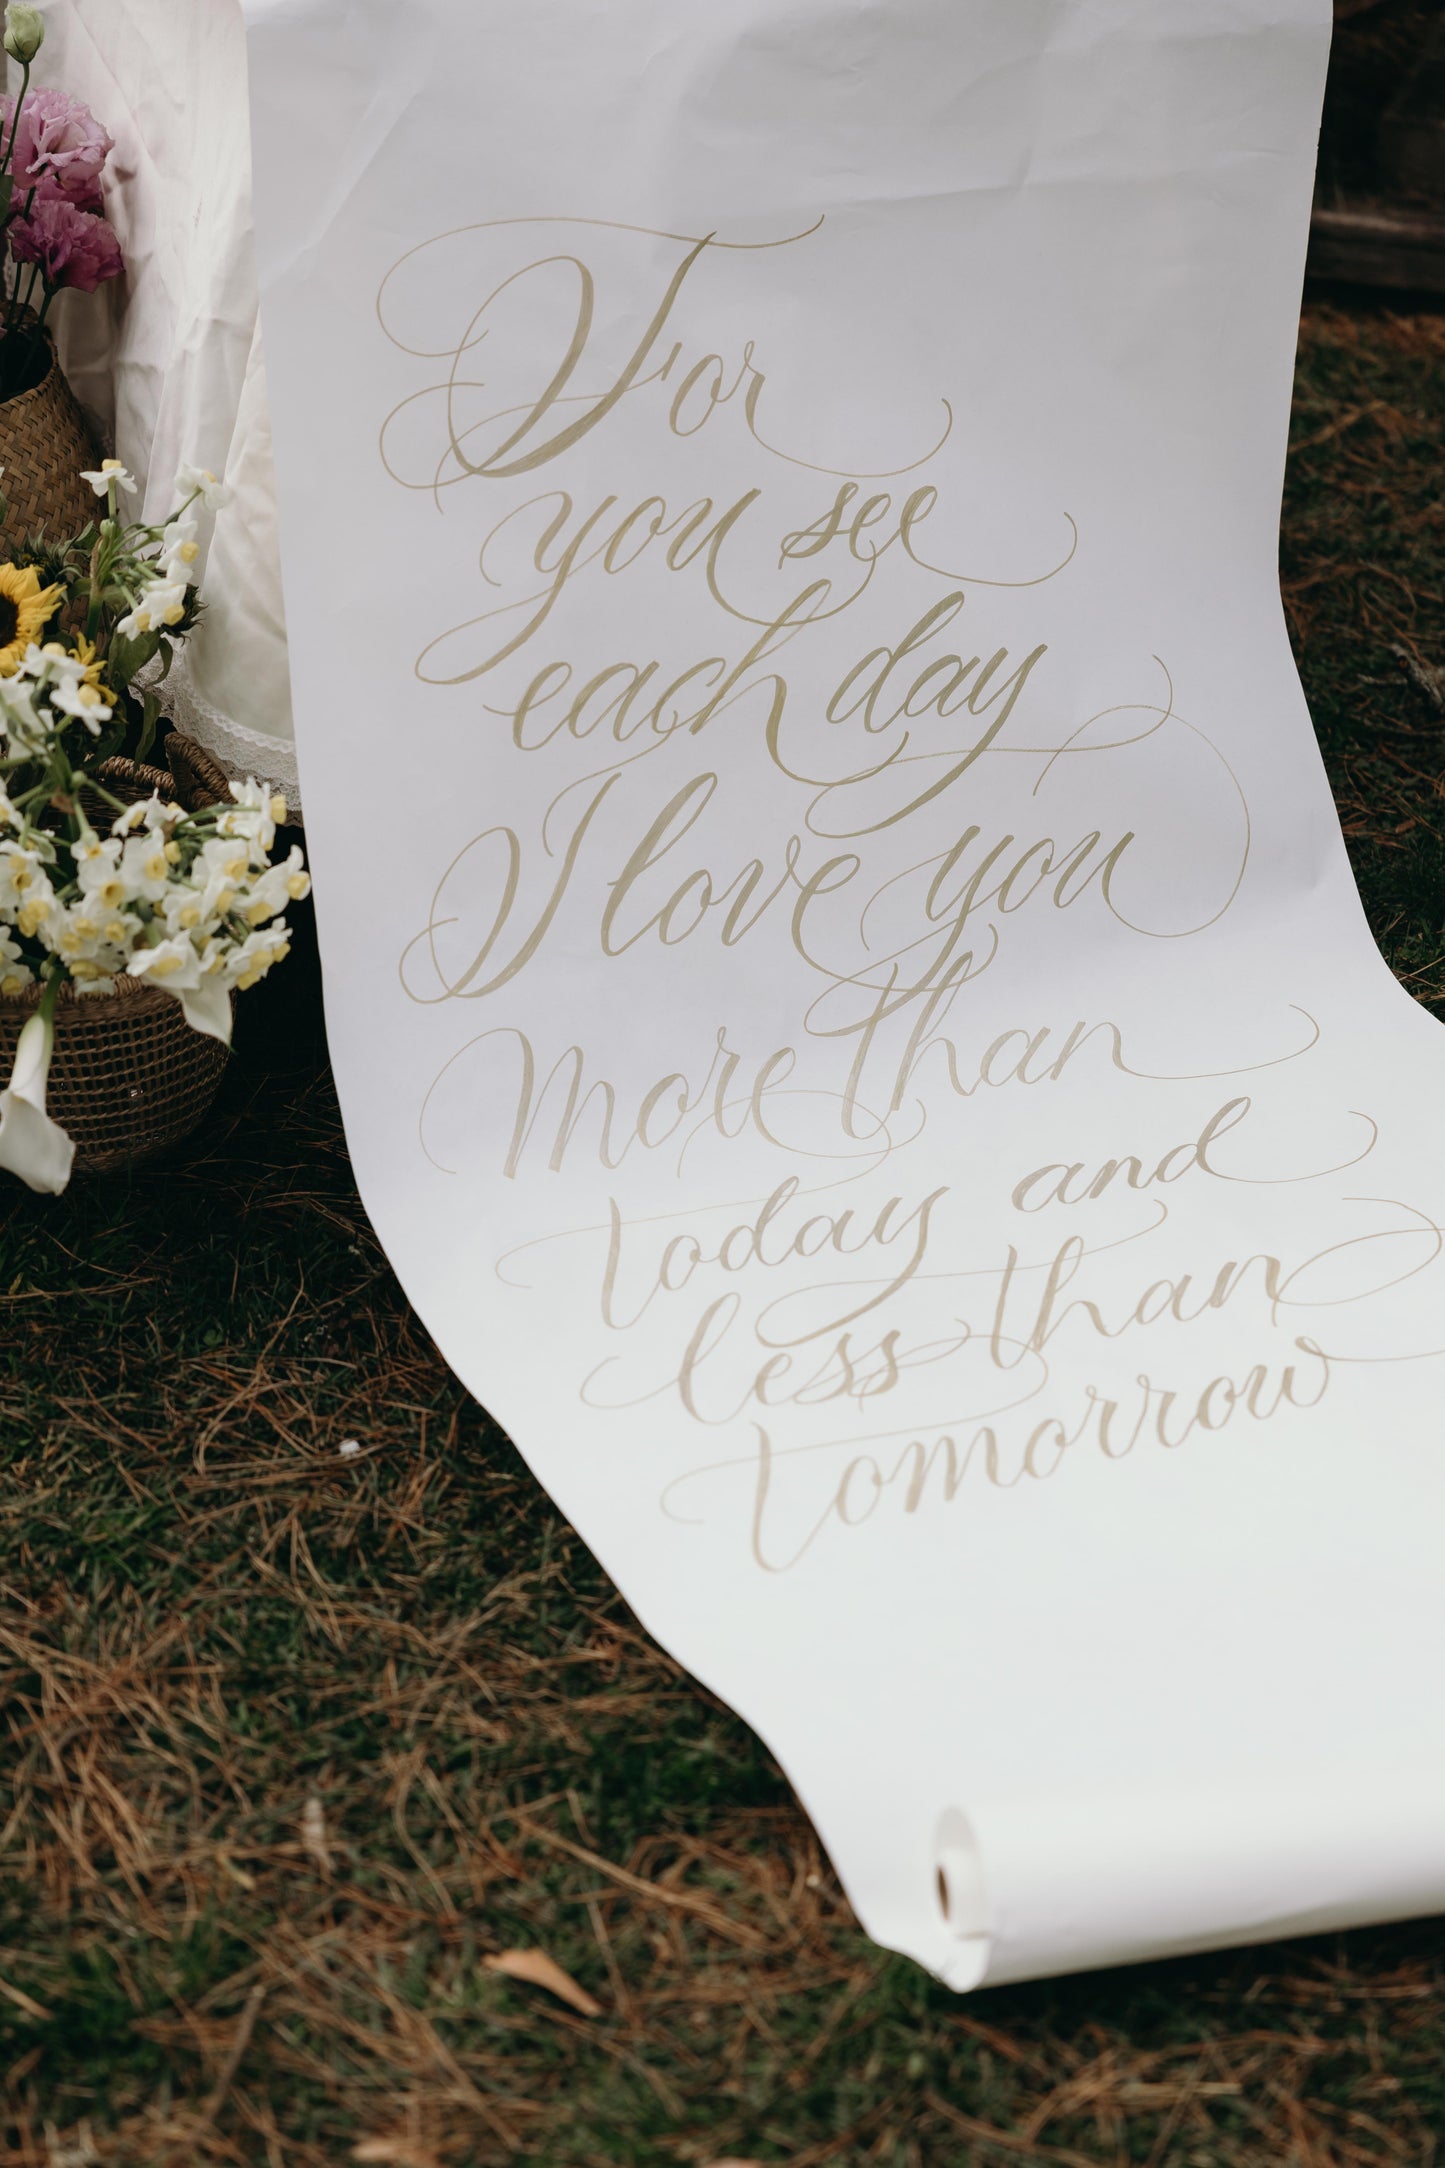 For
you see
each day
I love you
more than
today and
less than
tomorrow